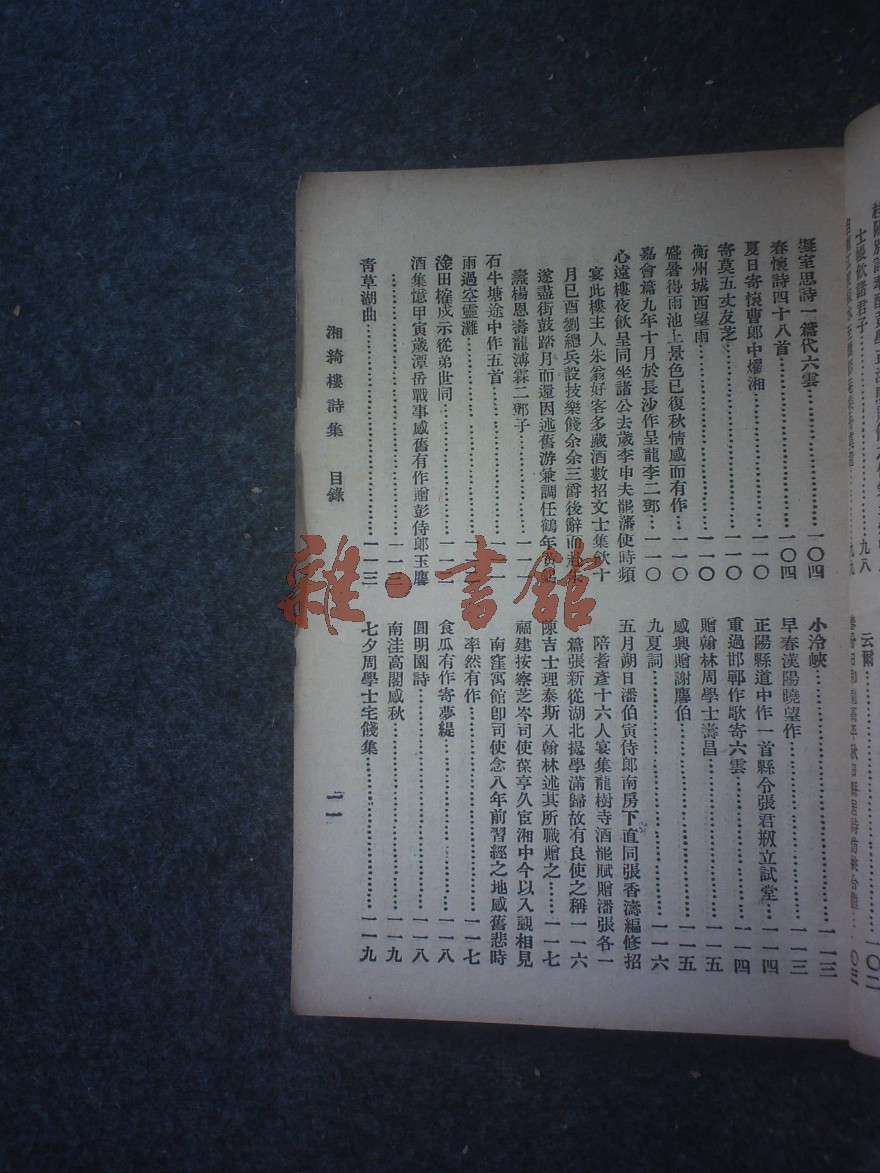 士帳飲諸君子
九八
九九
云爾
一〇二
一〇三
擬室思詩一篇代六雲……一〇四
春懷詩四十八首……一〇四
夏日寄懷曹郎中燿湘……一一〇
寄莫五丈友芝……一一〇
衡州城西望雨……一一〇
盛暑得雨池上景色已復秋情感而有作……一一〇
嘉會篇九年十月於長沙作呈龍李二鄧…一一〇
心遠樓夜飲呈同坐諸公去歲李申夫罷藩使時頻
宴此樓主人朱翁好客多藏酒數招文士集飲十
月已酉劉總兵設技樂餞余余三爵後辭而
遂盡街鼓踏月而還因述舊游兼調任鶴年黃
燾楊恩壽龍溥霖二鄧子……一一一
石牛塘途中作五首……一一
雨過空靈灘……一一
淦田榷戍示從弟世同……一一二
酒集憶甲寅歲潭岳戰事感舊有作贈彭侍郎玉麐
……一一三
青草湖曲……一一三
小泠峽……一一三
早春漢陽曉望作……一一三
正陽縣道中作一首縣令張君剏立試堂…一一四
重過邯鄲作歌寄六雲……一一四
贈翰林周學士壽昌……一一五
感興贈謝麐伯……一一五
九夏詞……一一六
五月朔日潘伯寅侍郎南房下直同張香濤編修招
陪耆彥十六人宴集龍樹寺酒罷賦贈潘張各一
篇張新從湖北提學滿歸故有良使之稱 一一六
陳吉士理泰斯入翰林述其所職贈之……一一七
福建按察芝岑司使葆亨久宦湘中今以入觀相見
南窪寓館卽司使念八年前習經之地感舊悲時
率然有作……一一七
食瓜有作寄夢緹……一一八
圓明園詩……一一八
南洼高閣感秋……一一九
七夕周學士宅餞集……一一九
湘綺樓詩集 目錄
一一
雜·書館